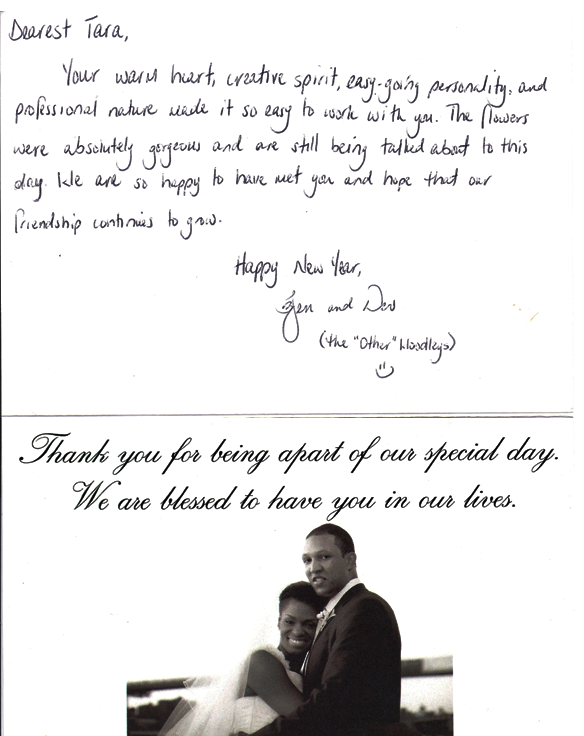 Dearest Tara,
Your warm heart, creative spirit, easy-going personality, and
professional nature made it so easy to work with you. The flowers
were absolutely gorgeous and are still being talked about to this
day. We are so happy to have met you and hope that our
friendship continues to grow.
Happy New Year,
Jen and Dev
(the "Other" Woodleys)
Thank you for being apart of our special day.
We are blessed to have you in our lives.